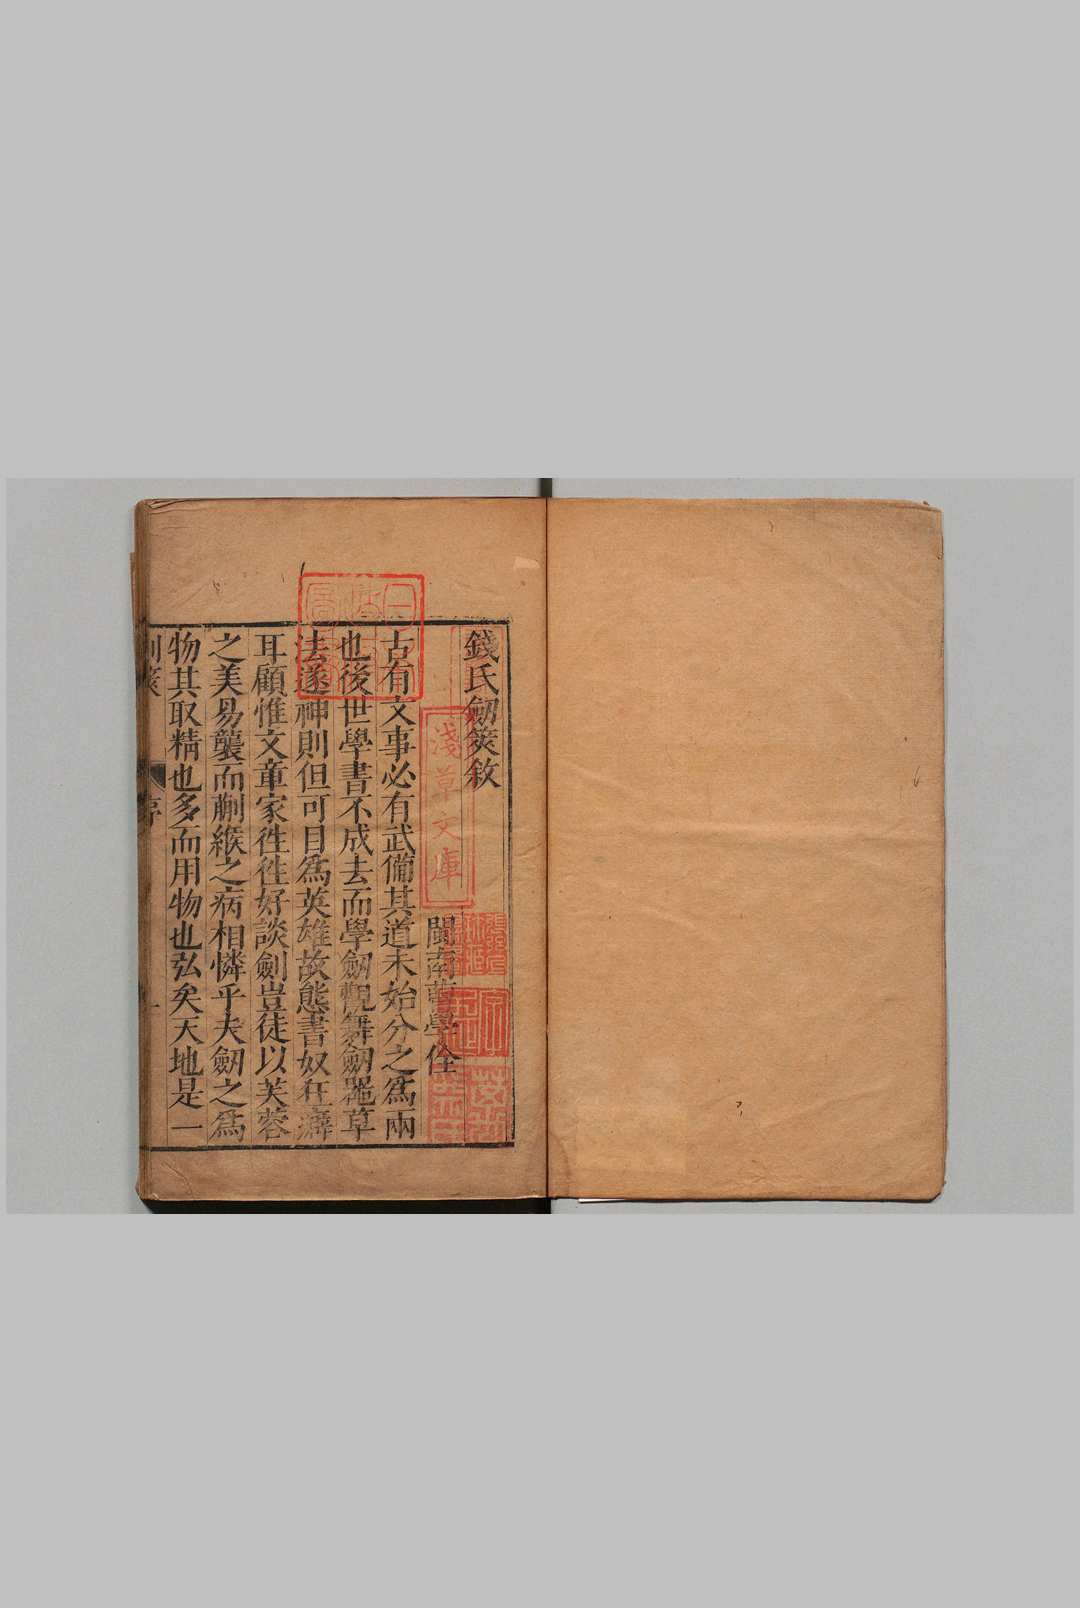 錢氏劒筴敘
閩南曹學佺
古有文事必有武備其道未始分之爲兩
也後世學書不成去而學劒觀舞劒器草
法遂神則但可目爲英雄故態書奴狂癖
耳顧惟文章家徃徃好談劍豈徒以芙蓉
之美易襲而蒯緱之病相憐乎夫劒之爲
物其取精也多而用物也弘矣天地是一
劍筴
序
一
淺草文庫